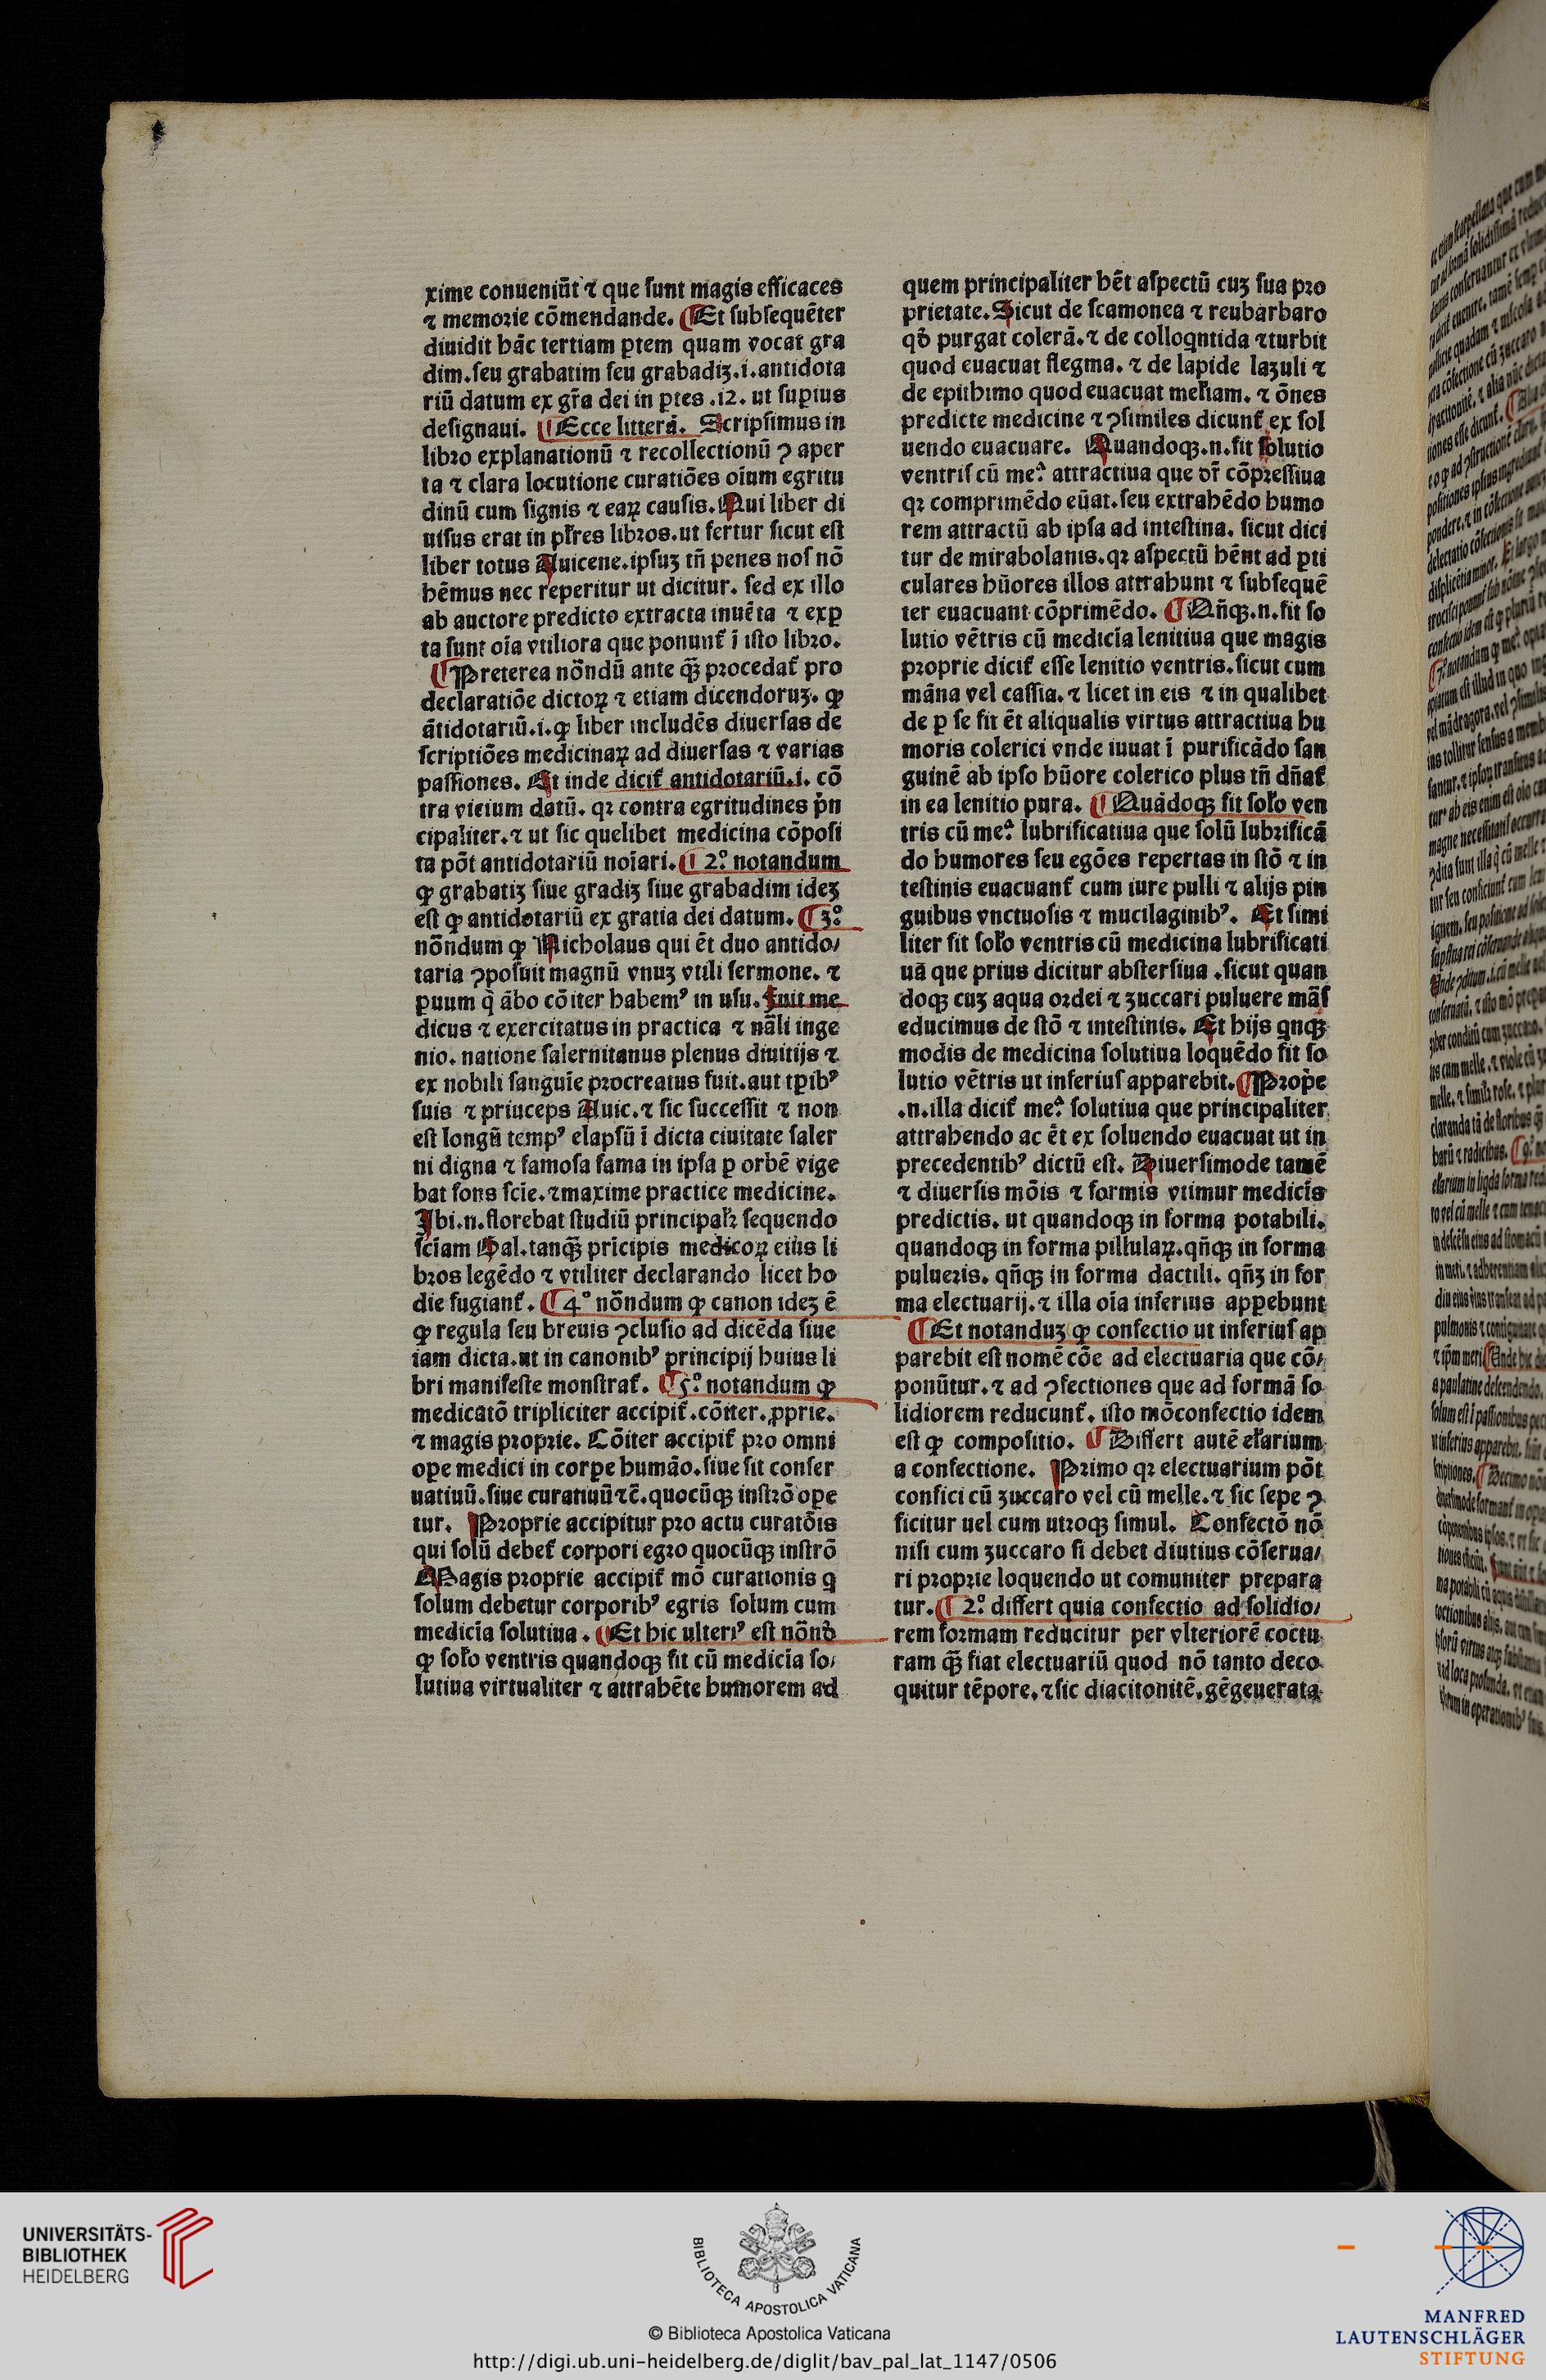 xime conueniūt ⁊ que ſunt magis efficaces
⁊ memorie cōmendande. ¶Et ſubſequēter
diuidit hāc tertiam ꝑtem quam vocat gra
dim.ſeu grabatim ſeu grabadiꝫ.i.antidota
riū datum ex gr̄a dei in ꝑtes .12. ut ſuꝑius
deſignaui. ¶Ecce litterā. Scripſimus in
libro explanationū ⁊ recollectionū ꝯ aper
ta ⁊ clara locutione curatiōes oīum egritu
dinū cum ſignis ⁊ eaꝝ cauſis. Qui liber di
uiſus erat in pl̄res libros.ut fertur ſicut eſt
liber totus Auicene.ipſuꝫ tn̄ penes noſ nō
hēmus nec reperitur ut dicitur. ſed ex illo
ab auctore predicto extracta inuēta ⁊ exꝑ
ta ſunt oīa vtiliora que ponunt᷑ ī iſto libro.
¶Preterea nōndū ante qꝫ̄ procedat᷑ pro
declaratiōe dictoꝝ ⁊ etiam dicendoruꝫ. ꝙ
ātidotariū.i.ꝙ liber includēs diuerſas de
ſcriptiōes medicinaꝝ ad diuerſas ⁊ varias
paſſiones. Et inde dicit᷑ antidotariū.i. cō
tra vicium datū. qꝛ contra egritudines p̄n
cipaliter.⁊ ut ſic quelibet medicina cōpoſi
ta pōt antidotariū noīari. ¶2.º notandum
ꝙ grabatiꝫ ſiue gradiꝫ ſiue grabadim ideꝫ
eſt ꝙ antidotariū ex gratia dei datum. ¶3.º
nōndum ꝙ Nicholaus qui ēt duo antido/
taria ꝯpoſuit magnū vnuꝫ vtili ſermone. ⁊
ꝑuum q̄ ābo cōiter habemꝰ in uſu. Fuit me
dicus ⁊ exercitatus in practica ⁊ nāli inge
nio. natione ſalernitanus plenus diuitijs ⁊
ex nobili ſanguīe procreatus fuit.aut tꝑibꝰ
ſuis ⁊ princeps Auic.⁊ ſic ſucceſſit ⁊ non
eſt longū tempꝰ elapſū ī dicta ciuitate ſaler
ni digna ⁊ famoſa fama in ipſa ꝑ orbē vige
bat fons ſcīe.⁊maxime practice medicine.
Ibi.n.florebat ſtudiū principalr̄ ſequendo
ſcīam Gal.tanqꝫ̄ prīcipis medicoꝝ eius li
bros legēdo ⁊ vtiliter declarando licet ho
die fugiant᷑. ¶4º nōndum ꝙ canon ideꝫ ē
ꝙ regula ſeu breuis ꝯcluſio ad dicēda ſiue
iam dicta.ut in canonibꝰ principij huius li
bri manifeſte monſtrat᷑. ¶5.º notandum ꝙ
medicatō tripliciter accipit᷑.cōiter.ꝓprie.
⁊ magis proprie. Cōiter accipit᷑ pro omni
oꝑe medici in corꝑe humāo.ſiue ſit conſer
uatiuū.ſiue curatiuū⁊c̄.quocūqꝫ inſtrō oꝑe
tur. Proprie accipitur pro actu curatōis
qui ſolū debet᷑ corpori egro quocūqꝫ inſtrō
Magis proprie accipit᷑ mō curationis q
ſolum debetur corporibꝰ egris ſolum cum
medicīa ſolutiua. ¶Et hic ulteriꝰ eſt nōnd̄
ꝙ ſolo ventris quandoqꝫ fit cū medicīa ſo/
lutiua virtualiter ⁊ attrahēte humorem ad
quem principaliter hēt aſpectū cuꝫ ſua pro
prietate. Sicut de ſcamonea ⁊ reubarbaro
qd̄ purgat colerā.⁊ de colloqntida ⁊turbit
quod euacuat flegma. ⁊ de lapide laꝫuli ⁊
de epithimo quod euacuat mel̄iam. ⁊ ōnes
predicte medicine ⁊ ꝯſimiles dicunt᷑ ex ſol
uendo euacuare. Quandoqꝫ.n.fit ſolutio
ventriſ cū me.ª attractiua que dr̄ cōpreſſiua
qꝛ comprimēdo eūat.ſeu extrahēdo humo
rem attractū ab ipſa ad inteſtina. ſicut dici
tur de mirabolanis.qꝛ aſpectū hēnt ad ꝑti
culares hūores illos attrahunt ⁊ ſubſequē
ter euacuant cōprimēdo. ¶Qn̄qꝫ.n.fit ſo
lutio vētris cū medicīa lenitiua que magis
proprie dicit᷑ eſſe lenitio ventris.ſicut cum
māna vel caſſia.⁊ licet in eis ⁊ in qualibet
de ꝑ ſe ſit ēt aliqualis virtus attractiua hu
moris colerici vnde iuuat ī purificādo ſan
guinē ab ipſo hūore colerico plus tn̄ dn̄at᷑
in ea lenitio pura. ¶Quādoqꝫ fit ſolo ven
tris cū me.ª lubrificatiua que ſolū lubrificā
do humores ſeu egōes repertas in ſtō ⁊ in
teſtinis euacuant᷑ cum iure pulli ⁊ alijs pin
guibus vnctuoſis ⁊ mucilaginibꝰ. Et ſimi
liter fit ſolo ventris cū medicina lubrificati
uā que prius dicitur abſterſiua .ſicut quan
doqꝫ cuꝫ aqua ordei ⁊ ꝫuccari puluere māſ
educimus de ſtō ⁊ inteſtinis. Et hijs qnqꝫ
modis de medicina ſolutiua loquēdo fit ſo
lutio vētris ut inferiuſ apparebit. ¶Prop̄e
.n.illa dicit᷑ me.ª ſolutiua que principaliter
attrahendo ac ēt ex ſoluendo euacuat ut in
precedentibꝰ dictū eſt. Diuerſimode tamē
⁊ diuerſis mōis ⁊ formis vtimur medicīs
predictis. ut quandoqꝫ in forma potabili.
quandoqꝫ in forma pillulaꝝ.qn̄qꝫ in forma
pulueris. qn̄qꝫ in forma dactili. qn̄ꝫ in for
ma electuarij.⁊ illa oīa inferius apꝑebunt
¶Et notanduꝫ ꝙ confectio ut inferiuſ ap
parebit eſt nomē cōe ad electuaria que cō/
ponūtur.⁊ ad ꝯfectiones que ad formā ſo
lidiorem reducunt᷑. iſto mōconfectio idem
eſt ꝙ compoſitio. ¶Differt autē el̄arium
a confectione. Primo qꝛ electuarium pōt
confici cū ꝫuccaro vel cū melle.⁊ ſic ſepe ꝯ
ficitur uel cum utroqꝫ ſimul. Confectō nō
niſi cum ꝫuccaro ſi debet diutius cōſerua/
ri proprie loquendo ut comuniter prepara
tur. ¶2.º differt quia confectio ad ſolidio/
rem formam reducitur per vlteriorē coctu
ram qꝫ̄ fiat electuariū quod nō tanto deco
quitur tēpore.⁊ſic diacitonitē.gēgeuerata
UNIVERSITÄTS-
BIBLIOTHEK
HEIDELBERG
BIBLIOTECA APOSTOLICA VATICANA
© Biblioteca Apostolica Vaticana
http://digi.ub.uni-heidelberg.de/diglit/bav_pal_lat_1147/0506
MANFRED
LAUTENSCHLÄGER
STIFTUNG